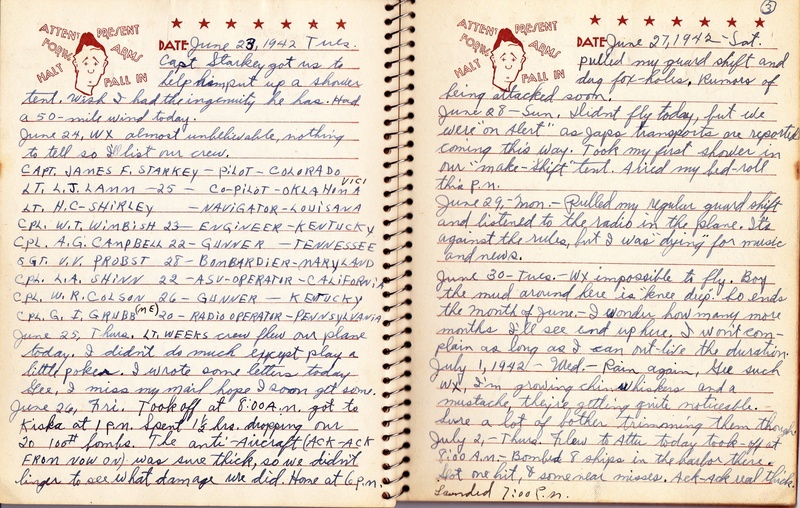 ATTENT PRESENT
FORWA ARMS
HALT FALL IN
DATE June 23, 1942 Tues.
Capt Starkey got us to
help him put up a shower
tent. Wish I had the ingenuity he has. Had
a 50-mile wind today.
June 24, WX almost unbelievable, nothing
to tell so I'll list our crew.
CAPT. JAMES E. STARKEY - PILOT - COLORADO
LT. L.J. LAMM - 25 - CO-PILOT - OKLAHOMA VICI
LT. H.C - SHIRLEY - NAVIGATOR - LOUISANA
CPL. W.T. WIMBISH 23 - ENGINEER - KENTUCKY
CPL. A.G. CAMPBELL 22 - GUNNER - TENNESSEE
SGT. V.V. PROBST 28 - BOMBARDIER - MARYLAND
CPL. L.A. SHINN 22 - ASV-OPERATOR - CALIFORNIA
CPL. W.R. COLSON 26 - GUNNER - KENTUCKY
CPL. G. I. GRUBB (ME) 20 - RADIO OPERATOR - PENNSYLVANIA
June 25, Thurs. LT. WEEKS crew flew our plane
today. I didn't do much except play a
little poker. I wrote some letters today
Gee, I miss my mail hope I soon get some.
June 26, Fri. Took off at 8:00 A.M. got to
Kiska at 1 P.M. Spent 1/2 hrs. dropping our
20 100# bombs. The anti-Aircraft (ACK-ACK
FROM NOW ON) was sure thick, so we didn't
linger to see what damage we did. Home at 6 P.M.
3
ATTENT PRESENT
FORWA ARMS
HALT FALL IN
DATE June 27, 1942 - Sat.
pulled my guard shift and
dug fox-holes. Rumors of
being attacked soon.
June 28 - Sun. I didnt fly today, but we
were "on Alert" as Japs transports are reported
coming this way. Took my first shower in
our "make-shift" tent. Aired my bed-roll
this P.M.
June 29, - Mon. - Pulled my regular guard shift
and listened to the radio in the plane. It's
against the rules, but I was "dying" for music
and news.
June 30 - Tues. - WX impossible to fly. Boy
the mud around here "is" knee dep". So ends
the month of June. - I wonder how many more
months I'll see end up here. I won't com-
plain as long as I can out-live the duration.
July 1, 1942 - Wed. - Rain again, Gee such
WX, I'm growing chin whiskers and a
mustache they're getting quite noticeable. -
Sure a lot of bother trimming them though.
July 2, - Thurs. Flew to Attu today took-off at
8:00 A.M. - Bombed 8 ships in the harbor there.
Got one hit, & some near misses. Ack-Ack real thick.
Landed 7:00 P.M.